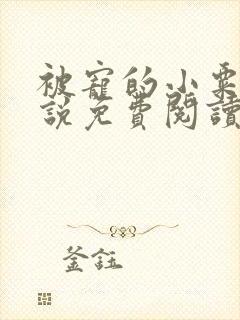 被寵的小粟
說免費閱讀
釜鈺